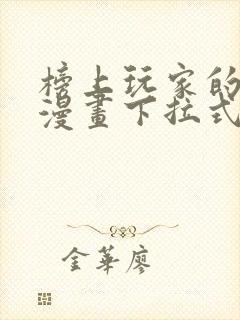 榜上玩家的
漫畫下拉式
金華廖